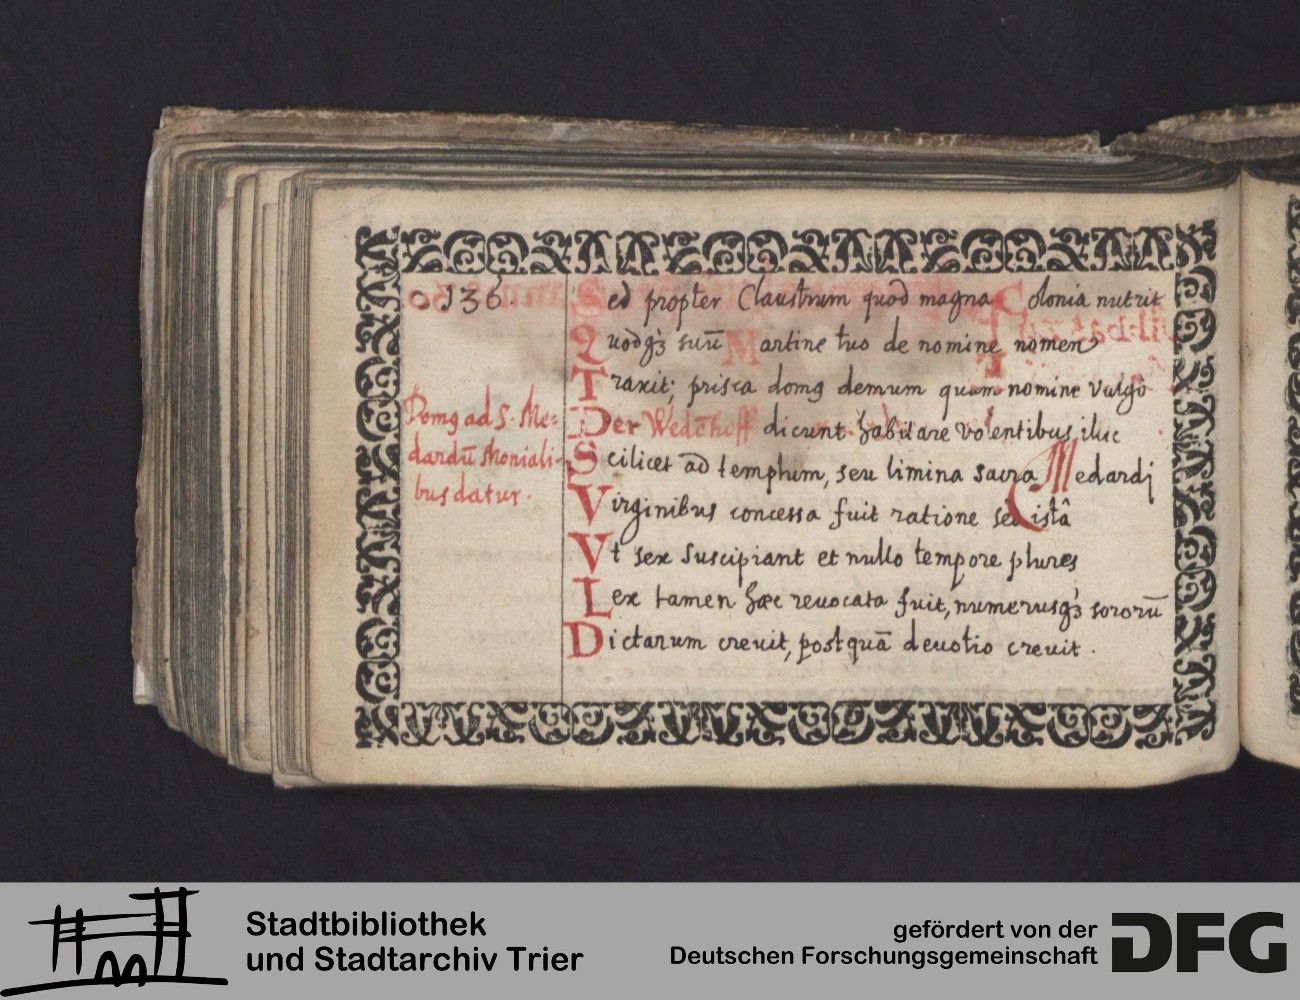 0.136.
Sed propter Claustrum quod magna Colonia nutrit
Quodqꝫ suū Martine tuo de nomine nomen
Traxit; prisca domꝰ demum quam nomine vulgo
Domꝰ ad S. Me=
Der Wedēhoff dicunt habitare volentibus illic
dardū Moniali-
Scilicet ad templum, seu limina sacra Medardi
bus datur.
Virginibus concessa fuit ratione sed istâ
Vt sex suscipiant et nullo tempore plures
Lex tamen hæc reuocata fuit, numerusqꝫ sororū
Dictarum creuit, postquā deuotio creuit.
Stadtbibliothek
und Stadtarchiv Trier
gefördert von der
Deutschen Forschungsgemeinschaft
DFG